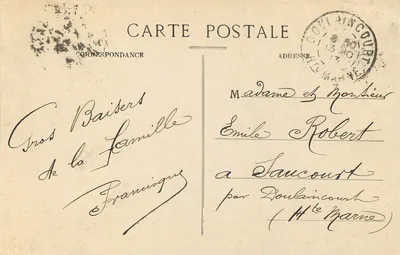 CARTE POSTALE
CORRESPONDANCE
ADRESSE
DOULAINCOURT
Hte MARNE
Gros Baisers
de la famille
Madame et Monsieur
Emile Robert
a Saucourt
par Doulaincourt
(Hte Marne)